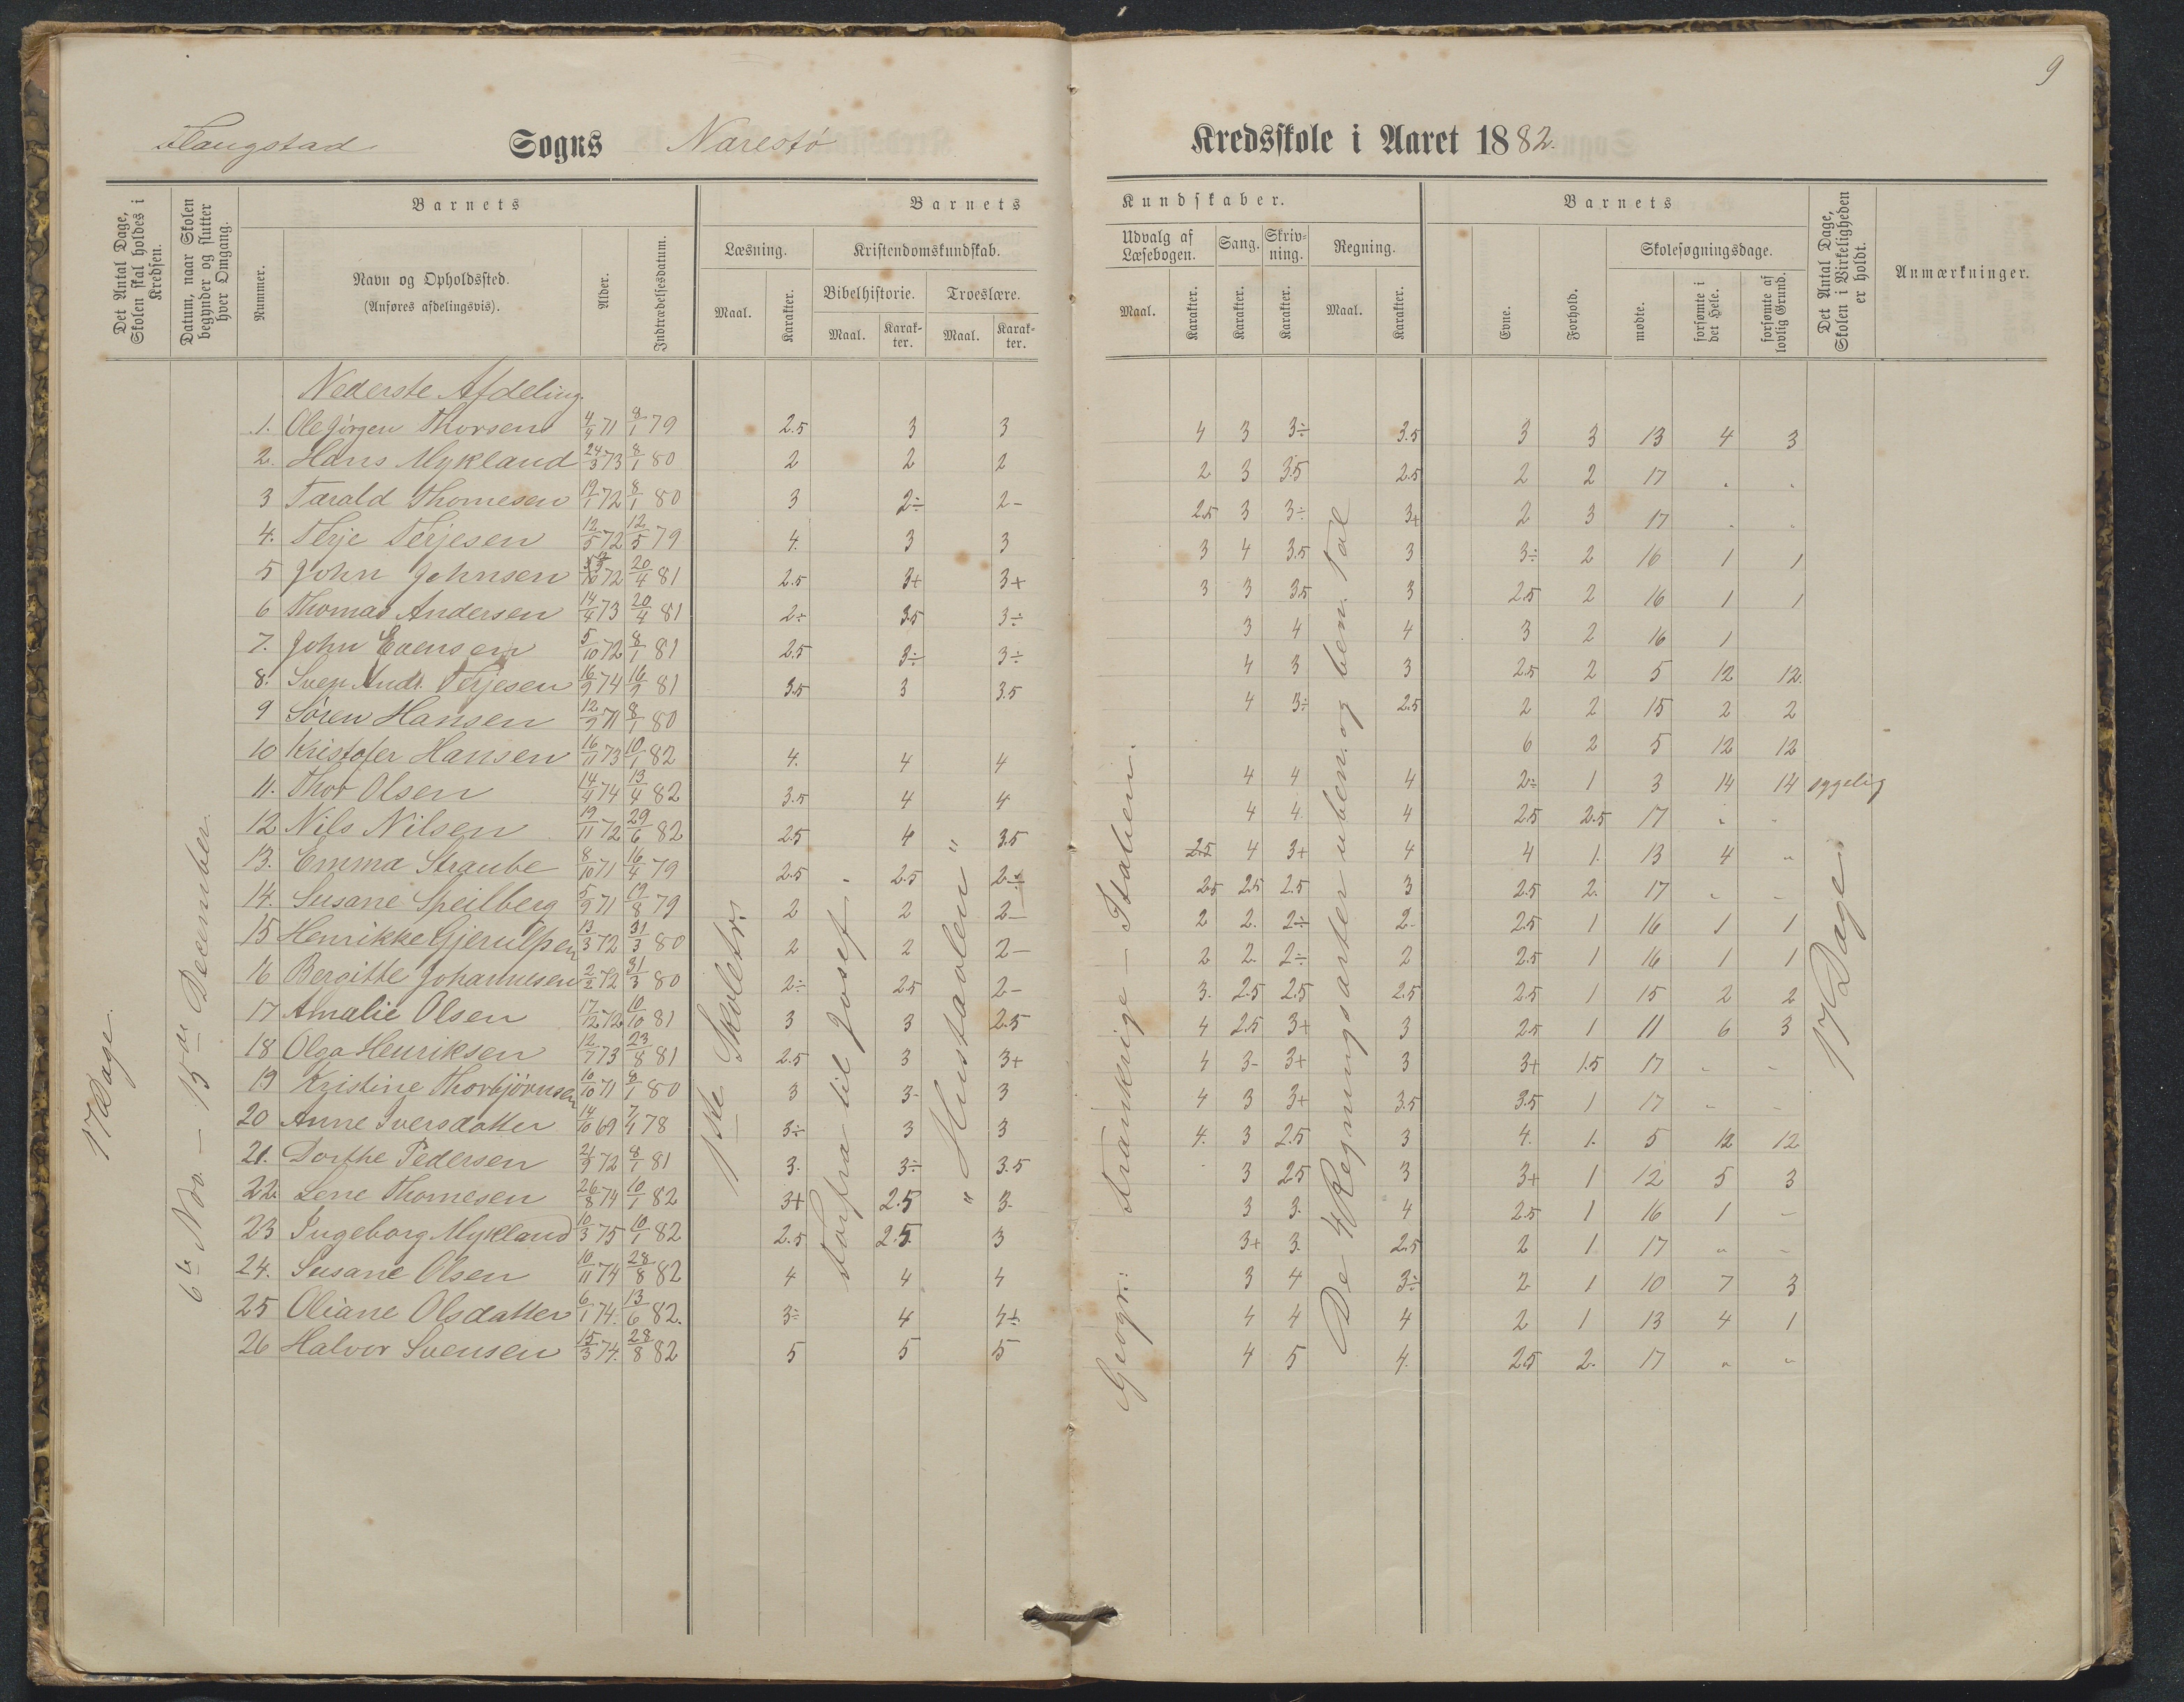 9
Flangstad Sogns Narestø Kredsskole i Aaret 1882.
Det Antal Dage, Skolen skal holdes i Kredsen.
Datum, naar Skolen begynder og slutter hver Omgang.
Barnets
Nummer.
Navn og Opholdssted.
(Anføres afdelingsvis).
Alder.
Indtrædelsesdatum.
Barnets Kundskaber.
Læsning.
Maal. Karakter.
Kristendomskundskab.
Bibelhistorie. Troeslære.
Maal. Karakter. Maal. Karakter.
Udvalg af Læsebogen.
Maal. Karakter.
Sang.
Karakter.
Skrivning.
Karakter.
Regning.
Maal. Karakter.
Barnets
Evne.
Forhold.
Skolesøgningsdage.
mødte.
forsømte i det Hele.
forsømte af lovlig Grund.
Det Antal Dage, Skolen i Virkeligheden er holdt.
Anmærkninger.
17 Dage.
6te Nov. – 15de December.
1ste Skoletr.
forfra til Josef.
"Hustavlen"
Geogr: Frankrige – Italien.
De 4 Regningsarter uben. og ben. Tal
17 Dage
Nederste Afdeling.
1. Ole Jørgen Thorsen 4/4 71 8/1 79 2.5 3 3 4 3 3÷ 3.5 3 3 13 4 3
2. Hans Mykland 24/3 73 8/1 80 2 2 2 2 3 3.5 2.5 2 2 17 " "
3 Tarald Thomesen 19/1 72 8/1 80 3 2÷ 2- 2.5 3 3÷ 3+ 2 3 17 " "
4. Terje Terjesen 12/5 72 12/5 79 4. 3 3 3 4 3.5 3 3÷ 2 16 1 1
5 John Johnsen 72 20/4 81 2.5 3+ 3+ 3 3 3.5 3 2.5 2 16 1 1
6 Thomas Andersen 14/4 73 20/4 81 2÷ 3.5 3÷ 3 4 4 3 2 16 1
7. John Evensen 5/10 72 8/1 81 2.5 3÷ 3÷ 4 3 3 2.5 2 5 12 12.
8. Sven Andr. Terjesen 16/9 74 16/9 81 3.5 3 3.5 4 3÷ 2.5 2 2 15 2 2
9 Søren Hansen 12/9 71 8/1 80 6 2 5 12 12
10 Kristofer Hansen 16/11 73 10/1 82 4. 4 4 4 4 4 2÷ 1 3 14 14 sygelig
11. Thor Olsen 14/4 74 13/4 82 3.5 4 4 4 4. 4 2.5 2.5 17 " "
12 Nils Nilsen 19/11 72 29/6 82 2.5 4 3.5 2.5 4 3+ 4 4 1. 13 4 "
13. Emma Straube 8/10 71 16/4 79 2.5 2.5 2÷ 2.5 2.5 2.5 3 2.5 2. 17 " "
14. Susane Speilberg 5/9 71 19/8 79 2 2 2- 2 2. 2÷ 2- 2.5 1 16 1 1
15 Henrikke Gjerulfsen 13/3 72 31/3 80 2 2 2- 2 2. 2÷ 2 2.5 1 16 1 1
16 Bergitte Johannesen 2/2 72 31/3 80 2÷ 2.5 2- 3. 2.5 2.5 2.5 2.5 1 15 2 2
17 Amalie Olsen 17/12 72 10/10 81 3 3 2.5 4 2.5 3+ 3 2.5 1 11 6 3
18 Olga Henriksen 12/7 73 23/8 81 2.5 3 3+ 4 3- 3+ 3 3+ 1.5 17 " "
19 Kristine Thorbjørnsen 10/10 71 8/1 80 3 3- 3 4 3 3+ 3.5 3.5 1 17 " "
20 Anne Iversdatter 14/10 69 7/4 78 3÷ 3 3 4. 3 2.5 3 4. 1. 5 12 12
21. Dorthe Pedersen 21/9 72 8/1 81 3. 3÷ 3.5 3 2.5 3 3+ 1 12 5 3
22. Lene Thomesen 26/8 74 10/1 82 3+ 2.5 3- 3 3. 4 2.5 1 16 1 –
23 Ingeborg Mykland 10/3 75 10/1 82 2.5 2.5. 3 3+ 3. 2.5 2 1 17 " "
24. Susane Olsen 10/11 74 28/8 82 4 4 4 3 4 3÷ 2 1 10 7 3
25 Oliane Olsdatter 6/1 74. 13/6 82. 3÷ 4 4÷ 4 4 4 2 1 13 4 1
26 Halvor Svensen 15/3 74. 28/8 82 5 5 5 4 5 4. 2.5 2. 17 " "